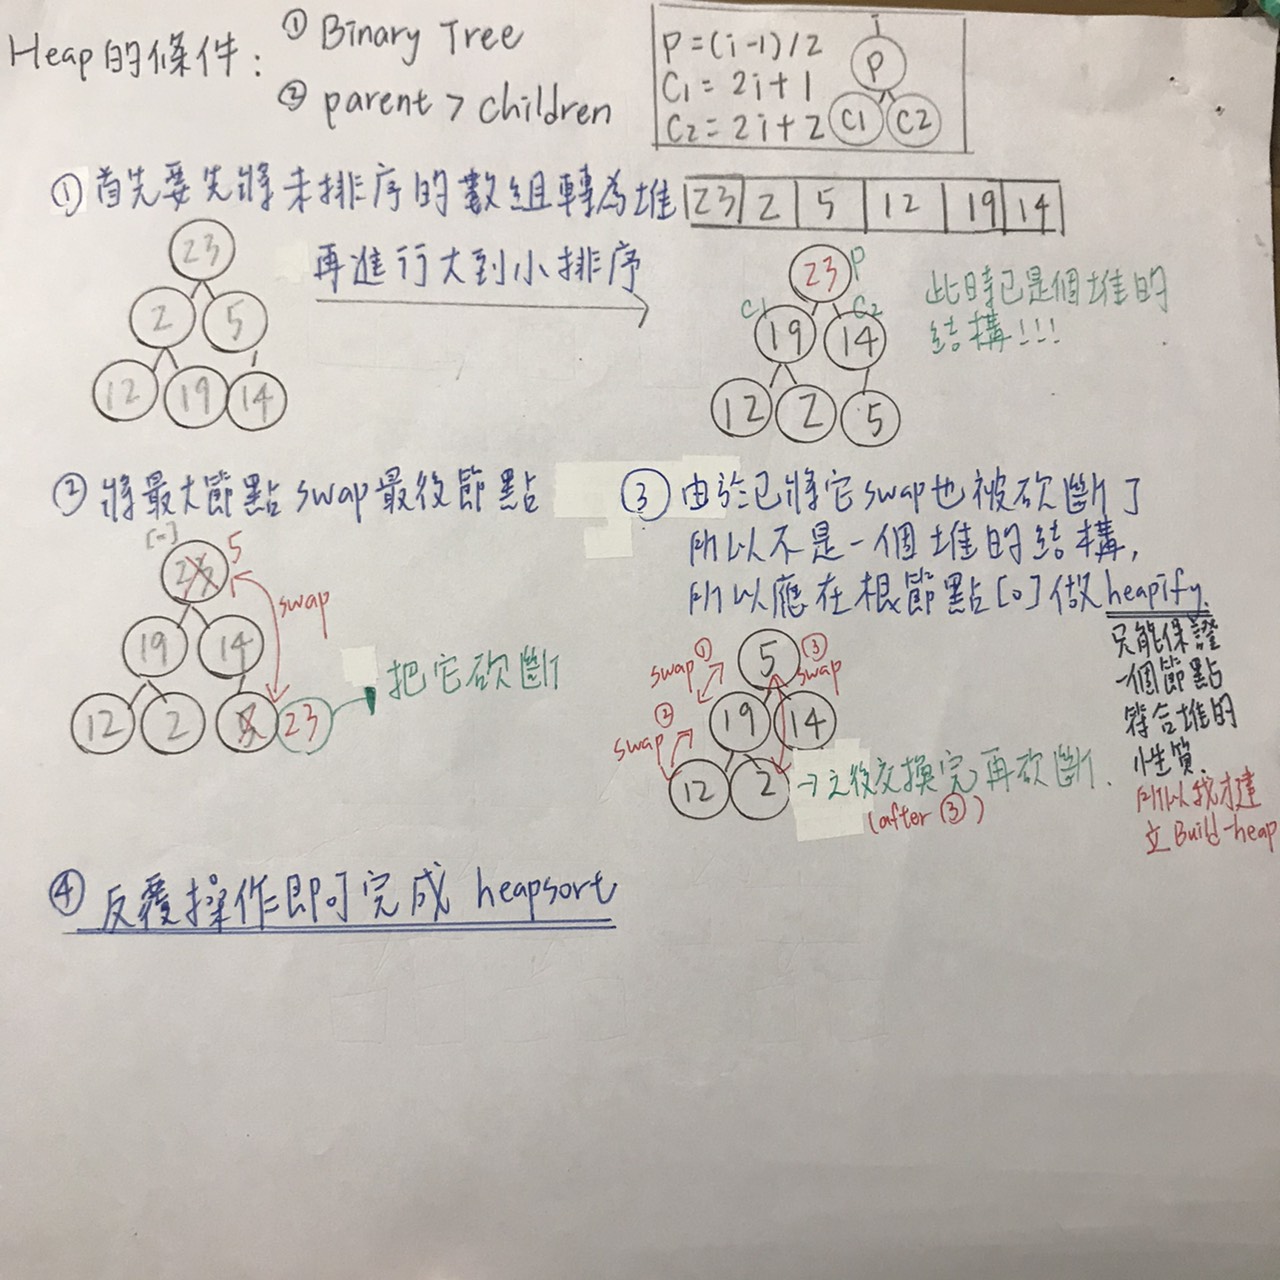 Heap的條件：
① Binary Tree
② parent > children
i
P = (i-1)/2
P
C1 = 2i+1
C2 = 2i+2
C1 C2
① 首先要先將未排序的數組轉為堆
23 2 5 12 19 14
再進行大到小排序
23
2 5
12 19 14
23 P
C1 C2
19 14
12 2 5
此時已是個堆的
結構!!!
② 將最大節點swap最後節點
[0]
5
swap
19 14
12 2 23
把它砍斷
③ 由於已將它swap也被砍斷了
所以不是一個堆的結構,
所以應在根節點[0]做heapify.
只能保證
一個節點
符合堆的
性質.
所以我才建
立Build-heap
swap① 5 ③swap
19 14
swap②
12 2
→之後交換完再砍斷.
(after ③)
④ 反覆操作即可完成 heapsort